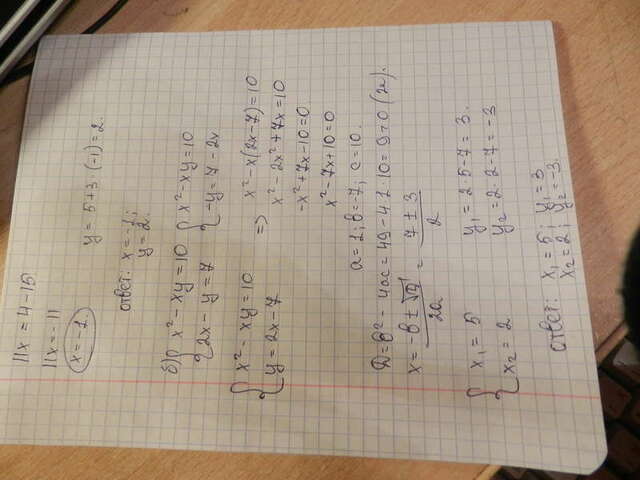 11x = 4 - 15
11x = -11
x = -1
y = 5 + 3 · (-1) = 2.
ответ: x = -1;
y = 2.
б) { x² - xy = 10 { x² - xy = 10
{ 2x - y = 7 { -y = 7 - 2x
{ x² - xy = 10 => x² - x(2x - 7) = 10
{ y = 2x - 7 x² - 2x² + 7x = 10
-x² + 7x - 10 = 0
x² - 7x + 10 = 0
a = 1; b = -7; c = 10.
D = b² - 4ac = 49 - 4·1·10 = 9 > 0 (2к).
x = (-b ± √D) / 2a = (7 ± 3) / 2
{ x₁ = 5 y₁ = 2·5 - 7 = 3.
{ x₂ = 2 y₂ = 2·2 - 7 = -3
ответ: x₁ = 5; y₁ = 3
x₂ = 2; y₂ = -3.